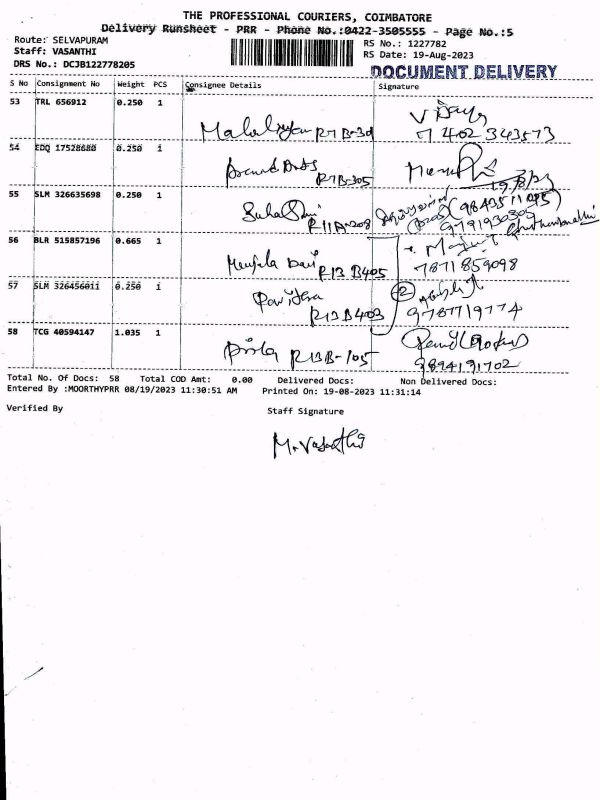 THE PROFESSIONAL COURIERS, COIMBATORE
Delivery Runsheet - PRR - Phone No.:0422-3505555 - Page No.:5
Route: SELVAPURAM
RS No.: 1227782
Staff: VASANTHI
RS Date: 19-Aug-2023
DRS No.: DCJB122778205
DOCUMENT DELIVERY
S No Consignment No Weight PCS Consignee Details Signature
53 TRL 656912 0.250 1 R7B-30
7402343573
54 EDQ 17528680 0.250 1 R7B-305
55 SLM 326635698 0.250 1 R11A-308
56 BLR 515857196 0.665 1 R13 B405
7871859098
57 SLM 326456011 0.250 1 Pavithra R13B403
2
9787719774
58 TCG 40594147 1.035 1 R13B-105
9894191702
Total No. Of Docs: 58 Total COD Amt: 0.00 Delivered Docs: Non Delivered Docs:
Entered By :MOORTHYPRR 08/19/2023 11:30:51 AM Printed On: 19-08-2023 11:31:14
Verified By Staff Signature
M.Vasanthi